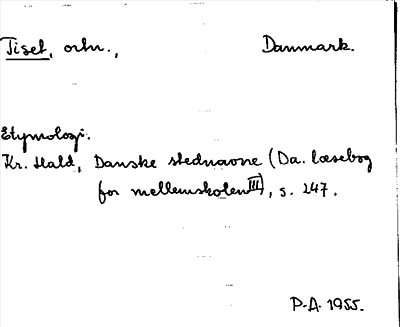 Tiset, ortn., Danmark.
Etymologi.
Kr. Hald, Danske stednavne (Da. læsebog
for mellemskolen III), s. 247.
P.A. 1955.